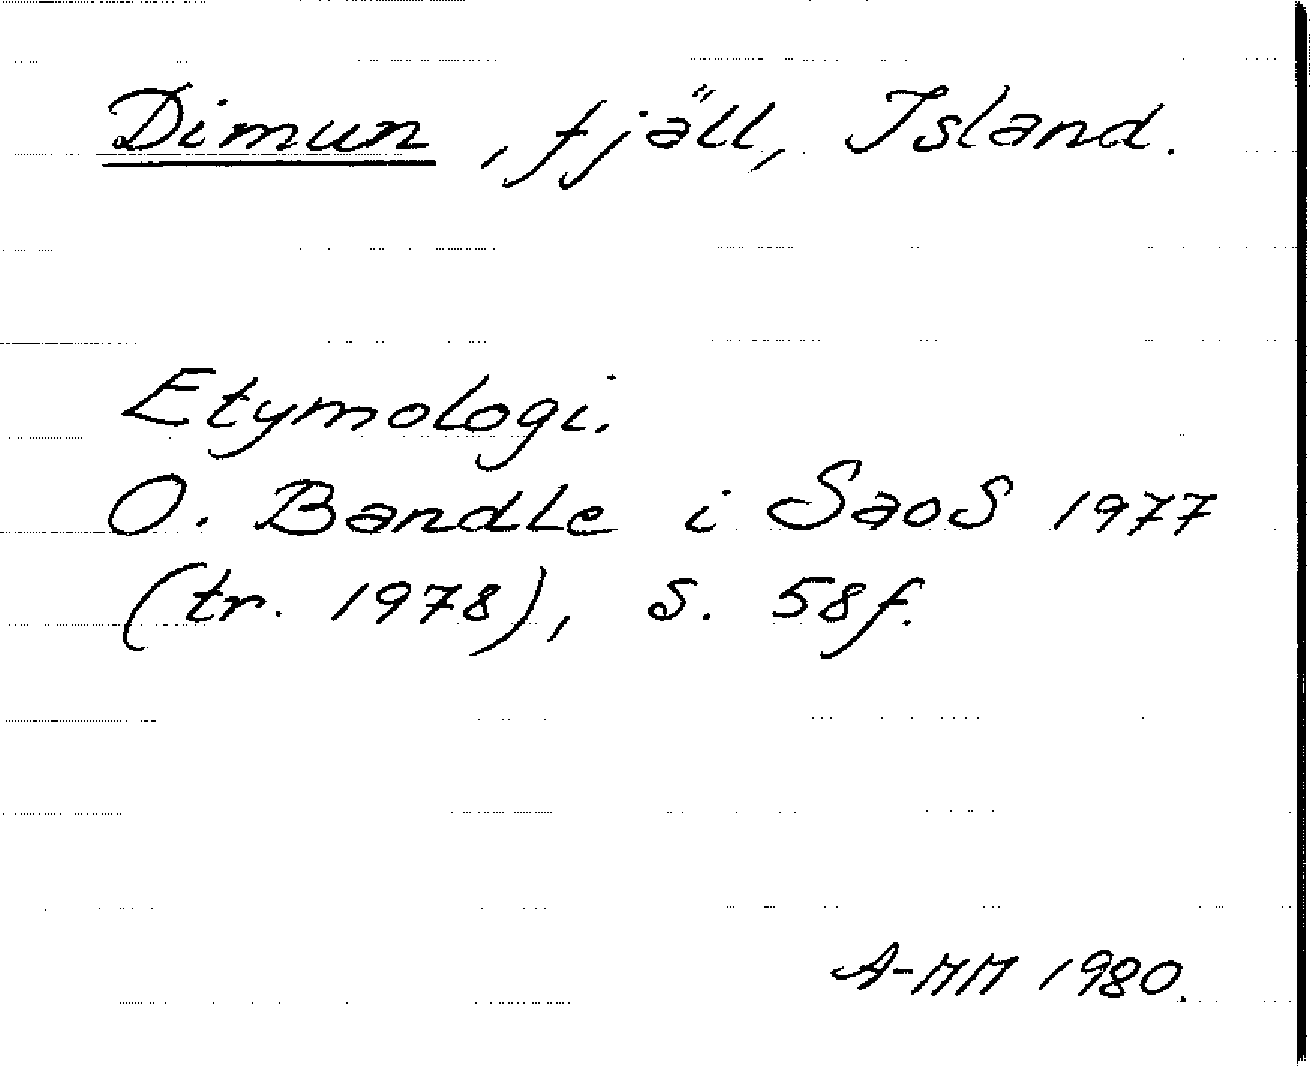 Dimun, fjäll, Island.
Etymologi.
O. Bandle i SaoS 1977
(tr. 1978), s. 58f.
A-MM 1980.